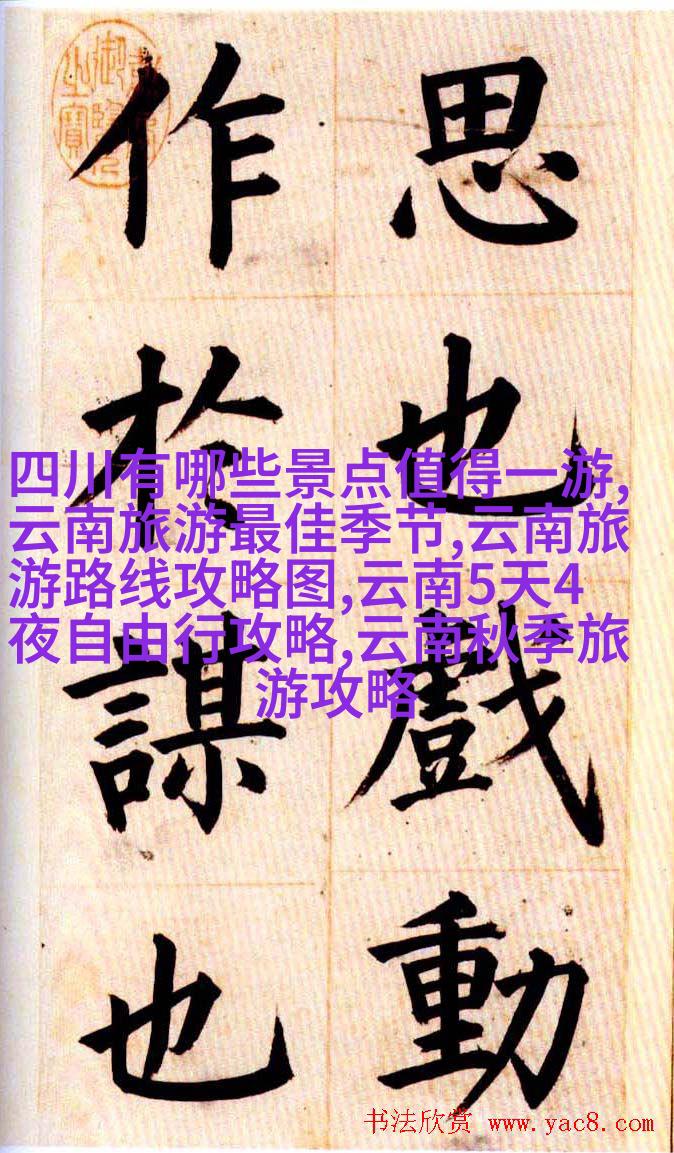 思也戲動
作於謀也
四川有哪些景点值得一游,
云南旅游最佳季节,云南旅
游路线攻略图,云南5天4
夜自由行攻略,云南秋季旅
游攻略
书法欣赏 www.yac8.com